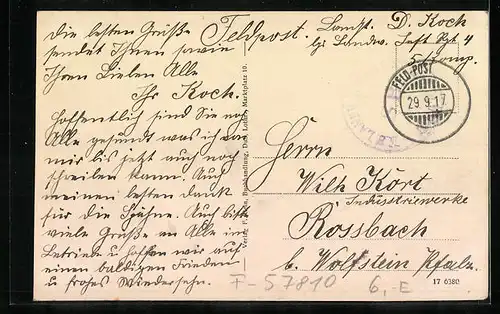 Die besten Grüße
sendet Ihnen sowie
Ihren Lieben Alle
Ihr Koch.
Hoffentlich sind Sie noch
Alle gesund was ich von
mir bis jetzt auch noch
schreiben kann. Auch
meinen besten dank
für die Spähne. Auch bitte
viele Grüße an Alle im
Betriebe u hoffen wir auf
einen baldigen Frieden
u frohes Wiedersehn.
Feldpost. Landst. D. Koch
Landw. Inft Rgt 4
5 Komp.
FELD-POST
29.9.17
Herrn
Wilh Kört
Industriewerke
Rossbach
b. Wolfstein Pfalz.
Buchhandlung, Marktplatz 10.
F-57810
6,-E
17 0380